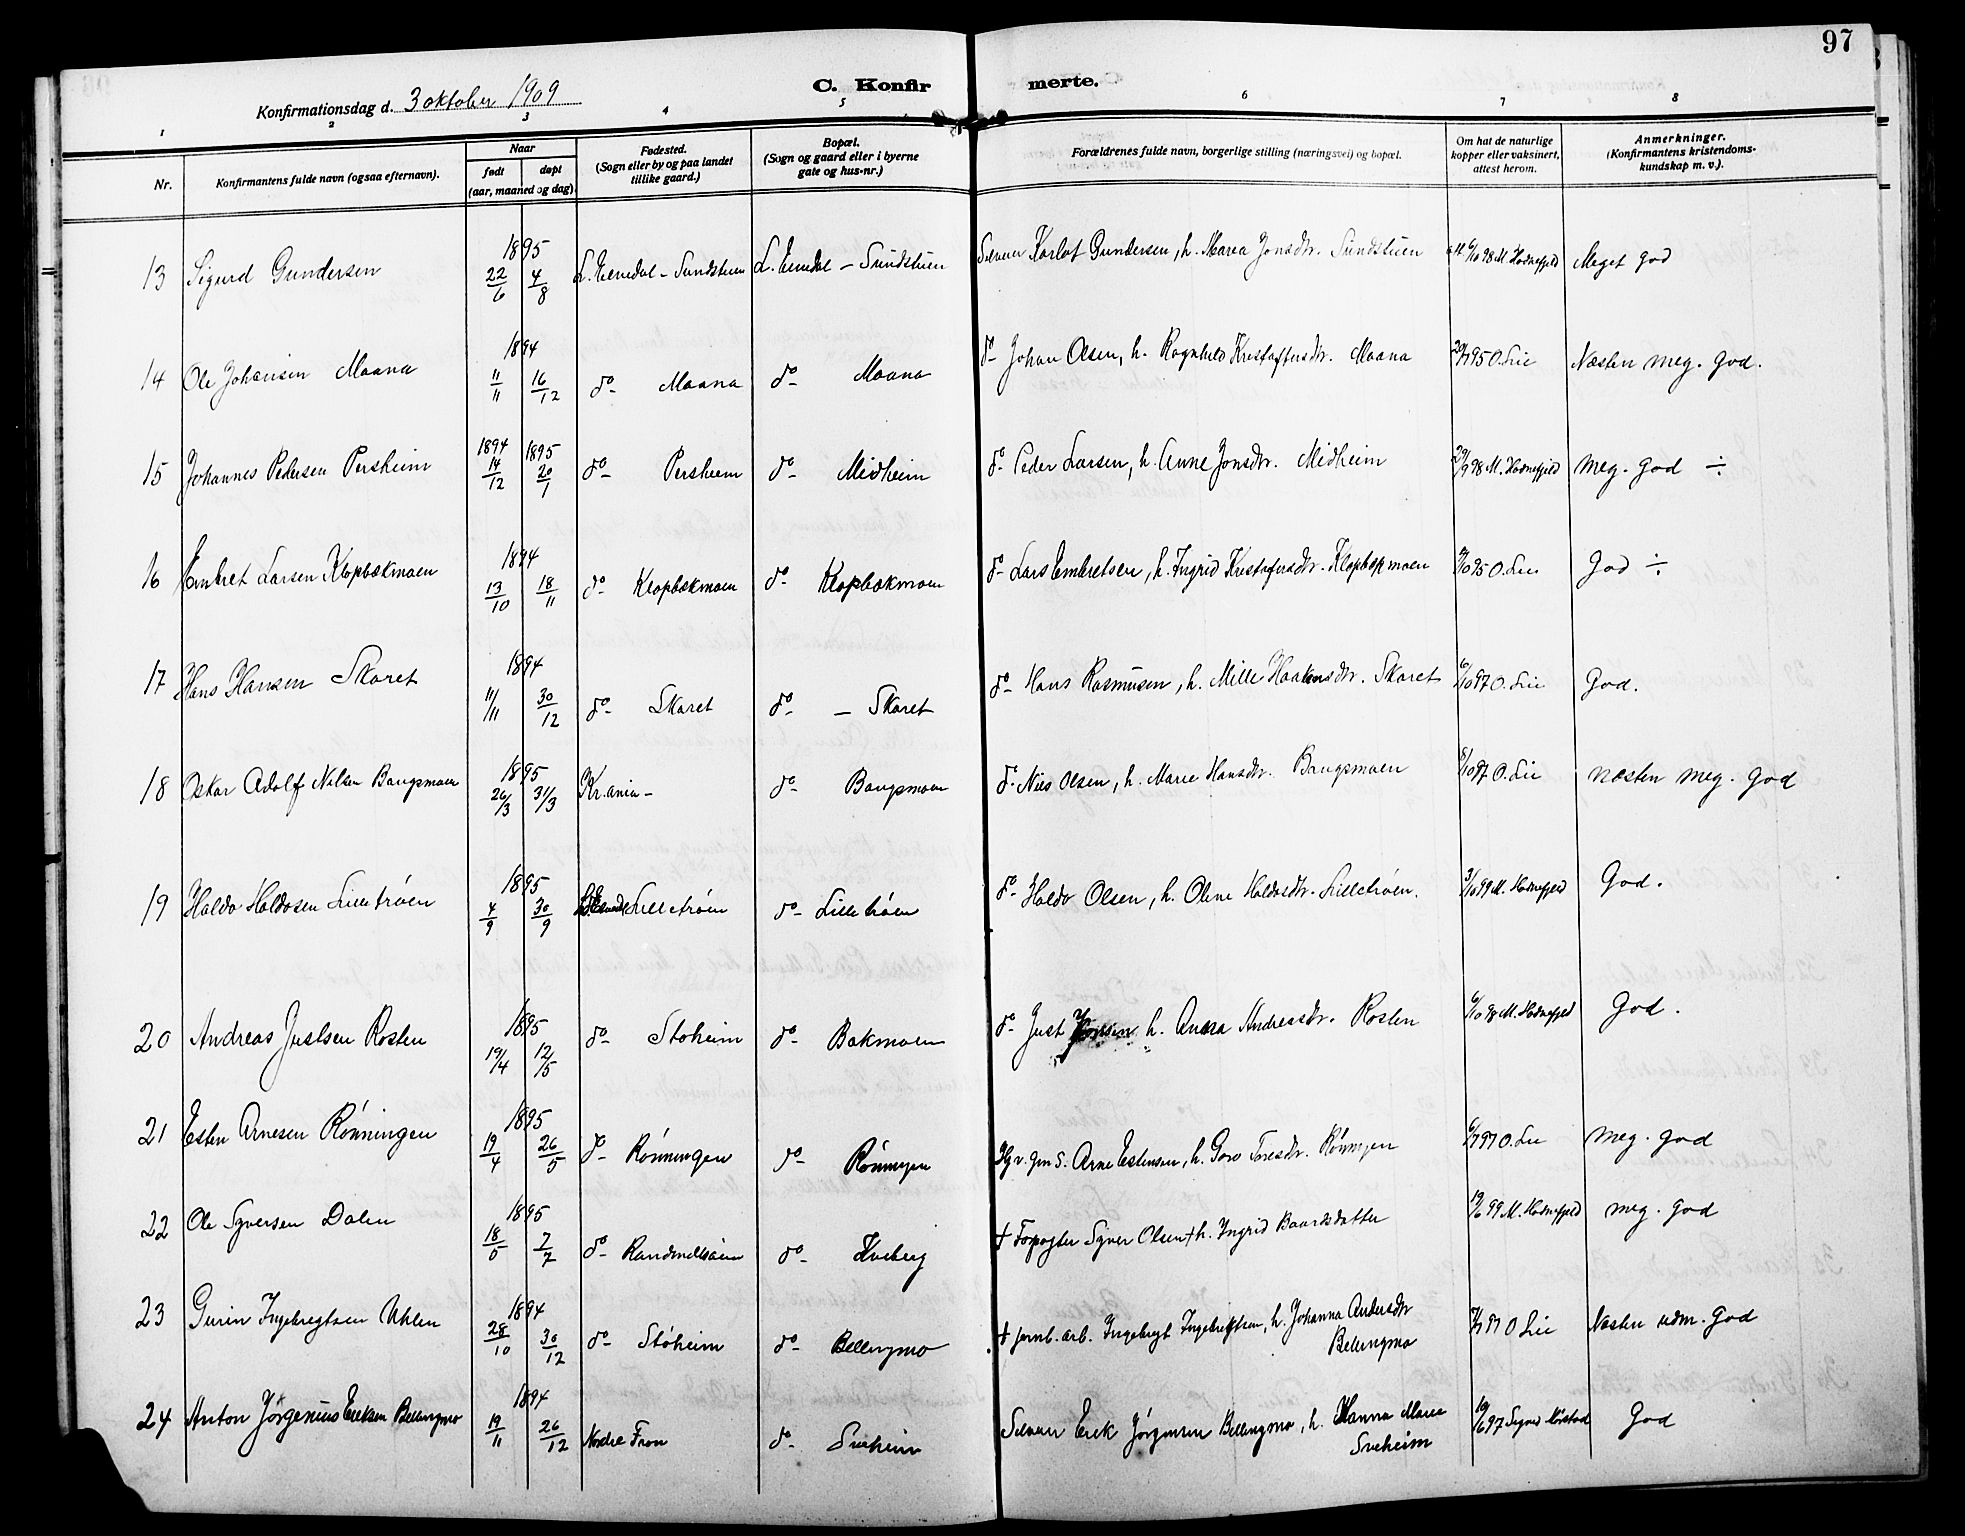 97
Konfirmationsdag d. 3 oktober 1909
C. Konfirmerte.
1 2 3 4 5 6 7 8
Nr.
Konfirmantens fulde navn (ogsaa efternavn).
Naar
født døpt
(aar, maaned og dag).
Fødested.
(Sogn eller by og paa landet
tillike gaard.)
Bopæl.
(Sogn og gaard eller i byerne
gate og hus-nr.)
Forældrenes fulde navn, borgerlige stilling (næringsvei) og bopæl.
Om hat de naturlige
kopper eller vaksinert,
attest herom.
Anmerkninger.
(Konfirmantens kristendoms-
kundskap m. v.).
1895
13 Sigurd Gundersen 22/6 4/8 L. Elvedal - Sundstuen L. Elvedal - Sundstuen Selveier Karlot Gundersen, h. Marea Jonsdtr. Sundstuen 6/10 98 M. Hodnefjeld Meget god
1894
14 Ole Johansen Maana 11/11 16/12 do- Maana do- Maana do- Johan Olsen, h. Ragnhild Kristoffersdtr. Maana 29/7 95 O. Lie Næsten meg. god.
1894 1895
15 Johannes Pedersen Persheim 14/12 20/1 do- Persheim do- Midheim do- Peder Larsen, h. Anne Jonsdtr. Midheim 29/9 98 M. Hodnefjeld meg. god ÷
1894
16 Embret Larsen Klopbækmoen 13/10 18/11 do- Klopbækmoen do- Klopbækmoen do- Lars Embretsen, h. Ingrid Kristofersdtr. Klopbækmoen /10 95 O. Lie God ÷
1894
17 Hans Hansen Skaret 11/11 30/12 do- Skaret do- - Skaret do- Hans Rasmusen, h. Mille Haakensdtr. Skaret 6/10 97 O. Lie God.
1895
18 Oskar Adolf Nilsen Baugsmoen 26/3 31/3 Kr.ania - do- Baugsmoen do- Nils Olsen, h. Marie Hansdtr. Baugsmoen 8/10 97 O. Lie næsten meg. god
1895
19 Haldo Haldosen Lilletrøen 4/9 30/9 Lilletrøen do- Lilletrøen do- Haldo Olsen, h. Olene Haldosdtr. Lilletrøen. 3/10 99 M. Hodnefjeld God.
1895
20 Andreas Justsen Rosten 19/4 12/5 do- Stoheim do- Bakmoen do- Just h. Anna Andreasdtr. Rosten 6/10 98 M. Hodnefjeld God.
1895
21 Esten Arnesen Rønningen 19/4 26/5 do- Rønningen do- Rønningen Arne Estensen, h. Goro Toresdtr. Rønningen 6/7 97 O. Lie meg. god
1895
22 Ole Syversen Dalen 18/5 7/7 do- do- Kveberg + Forpagter Syver Olsen + h. Ingrid Baardsdatter 19/6 99 M. Hodnefjeld meg. god
1894
23 Gurin Ingebregtsen Uhlen 28/10 30/12 do- Støheim do- Bellingmo + jernb. arb. Ingebregt Ingebregtsen, h. Johanna Andersdtr
Bellingmo O Lie Næsten udm. god
1894
24 Anton Jørgenius Eriksen Bellingmo 19/11 26/12 Nordre Fron do- Sveheim Selveier Erik Jørgensen Bellingmo, h. Hanna Marie
Sveheim 19/6 97 God